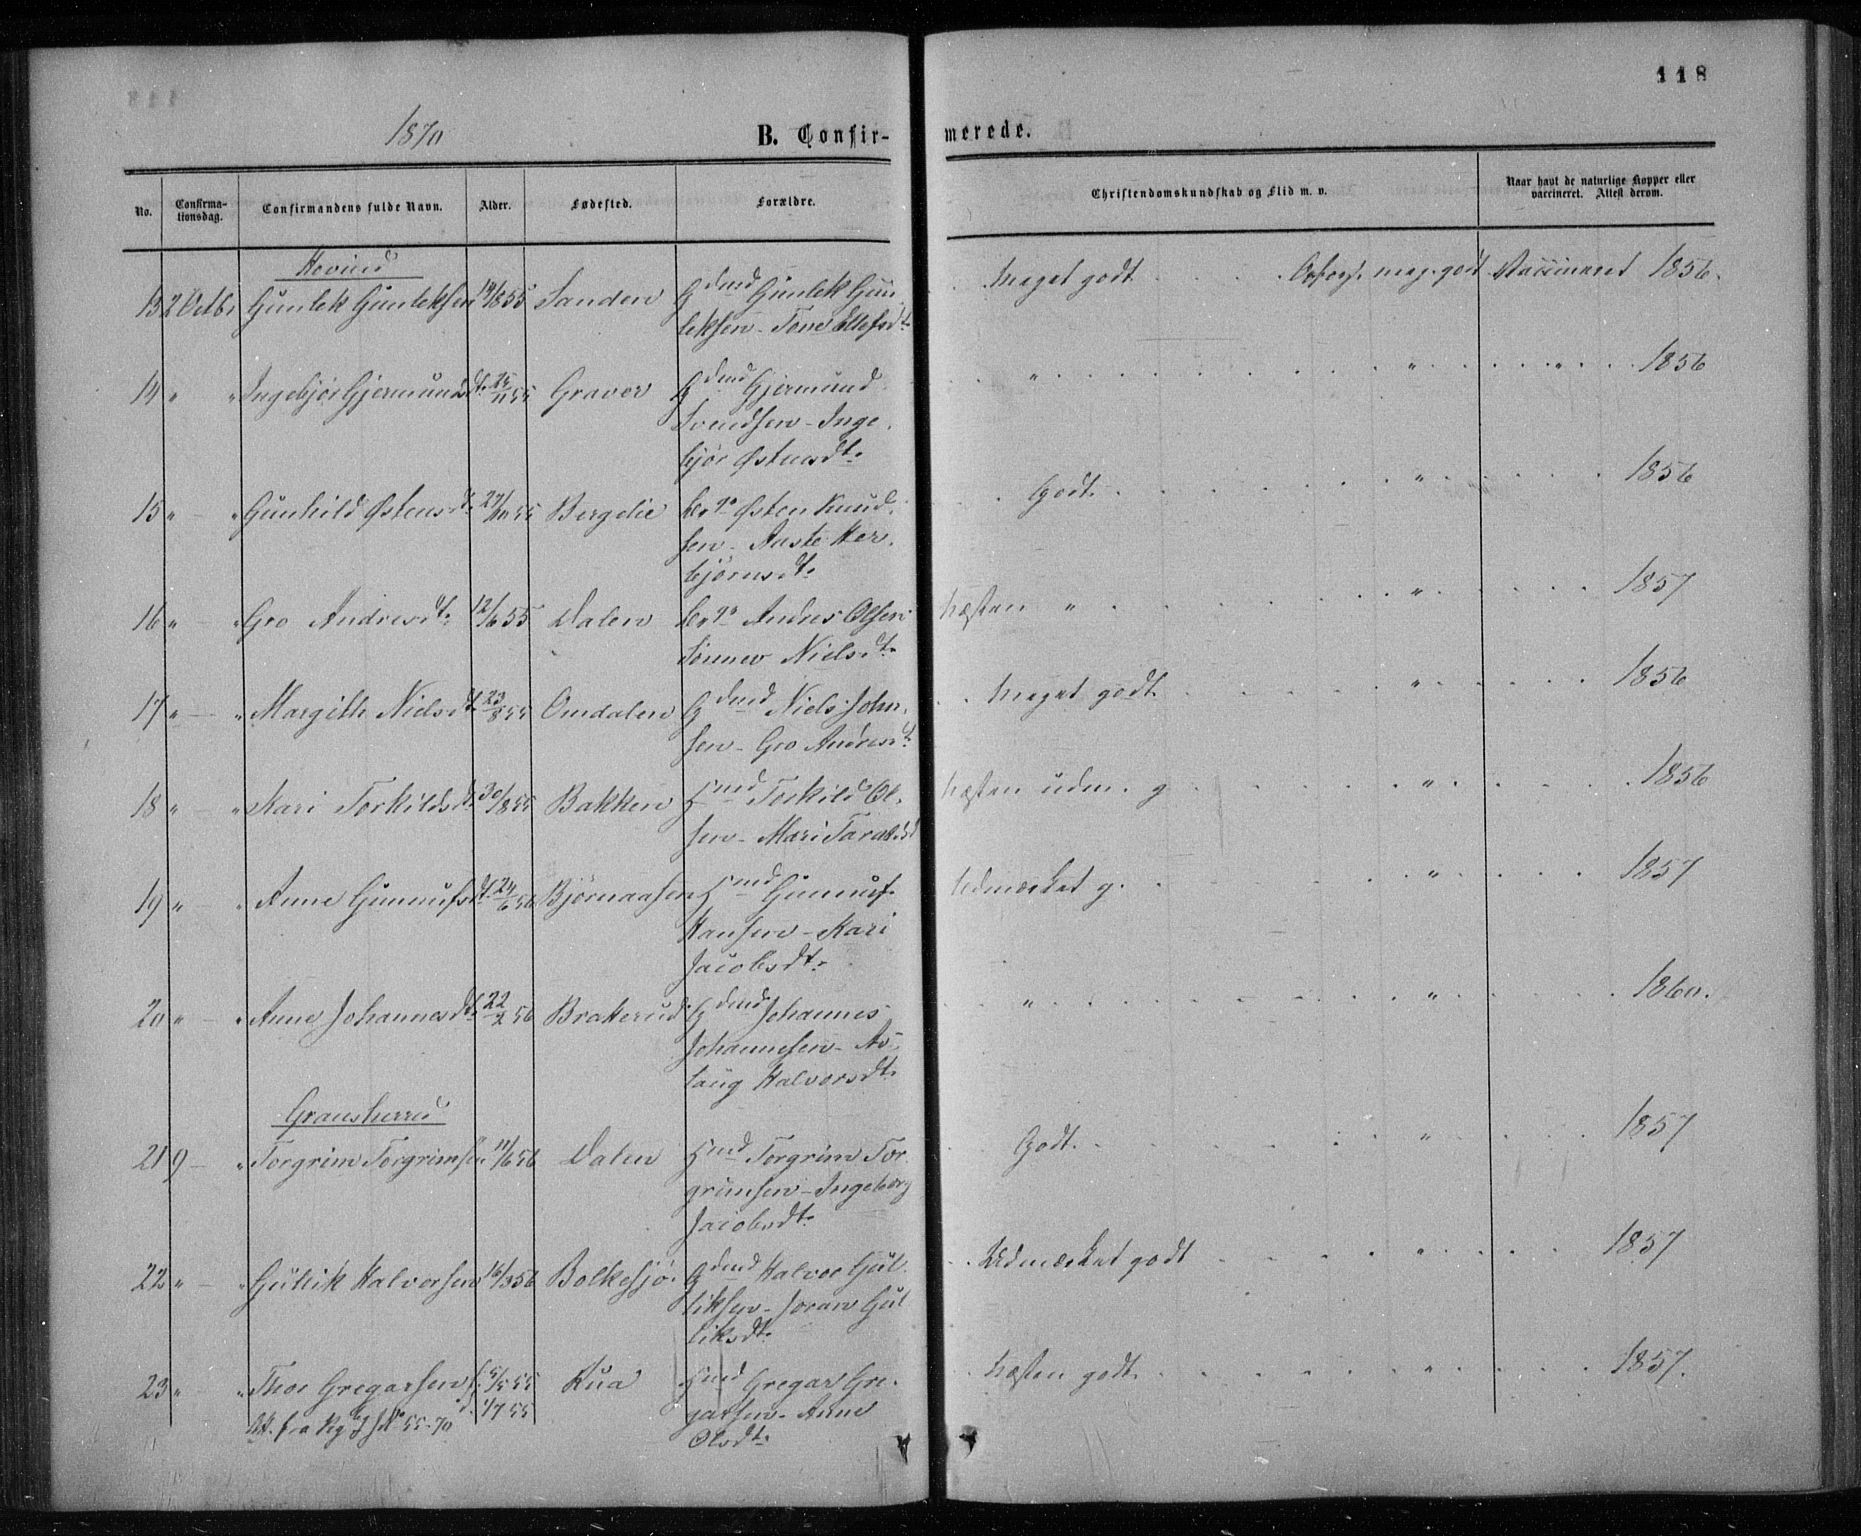 118
1870
B. Confir-
merede.
No.
Confirma-
tionsdag.
Confirmandens fulde Navn.
Alder.
Fødested.
Forældre.
Christendomskundskab og Flid m. v.
Naar havt de naturlige Kopper eller
vaccineret. Attest derom.
Hovind
13 2 Octbr Gunlek Gunleksen 14/8 55 Sanden Gdmd Gunlek Gun
leksen - Tone Ellefsdt.
Meget godt . . . . meg. godt Vaccineret 1856.
14 " " Ingebjør Gjermundsdt. 25/11 55 Graver Gdmd Gjermund
Svendsen - Inge
bjør Østensdt.
" . . . " . . . " . . 1856
15 " - " Gunhild Østensdt. 27/10 55 Bergelie Østen Knud
sen - Aaste Her
bjørnsdt.
Godt. . . . " . . . 1856
16 " - " Gro Andresdt. 12/6 55 Dalen Andres Olsen
Sønnev Nielsdt.
Næsten " . . . " . . . 1857
17 " - " Margith Nielsdt. 23/8 55 Omdalen Gdmd Niels John
sen - Gro Andresdt.
Meget godt . . . " . . . 1856
18 " - " Kari Torkildsdt. 30/8 55 Bakken Hmd Torkild Ol
sen - Mari Taraldsd
Næsten udm. g . . . " . . . 1856
19 " - " Anne Gunnufsdt. 24/6 56 Bjørnaasen Hmd Gunnuf
Hansen - Kari
Jacobsdt.
Udmærket g. . . . " . . . 1857
20 " - " Anne Johannesdt. 22/2 56 Brakerud Gdmd Johannes
Johannesen - As
laug Halvorsdt.
" . . . " . . . 1860.
Gransherred
21 9 - " Torgrim Torgrimsen 11/6 56 Dalen Hmd Torgrim Tor
grimsen - Ingeborg
Jacobsdt.
Godt. . . . " . . . 1857
22 " - " Gullik Halvorsen 16/3 56 Bolkesjø Gdmd Halvor Gul
liksen - Joran Gul
liksdt.
Udmærket godt . . . " . . . 1857
23 " - " Thor Gregarsen f. 5/5 55 Rua Hmd Gregar Gre
d. 1/7 55 garsen - Anne
Att. fra 55-70 Olsdt.
Næsten godt. . . . " . . . 1857.